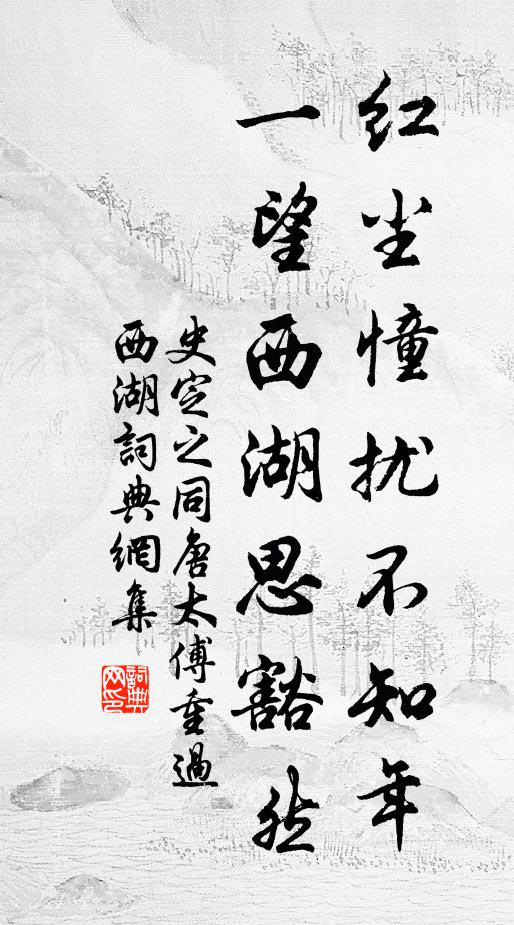 红尘憧扰不知年
一望西湖思豁然
史定之同唐太傅重過
西湖詞典網集
詞典
网印